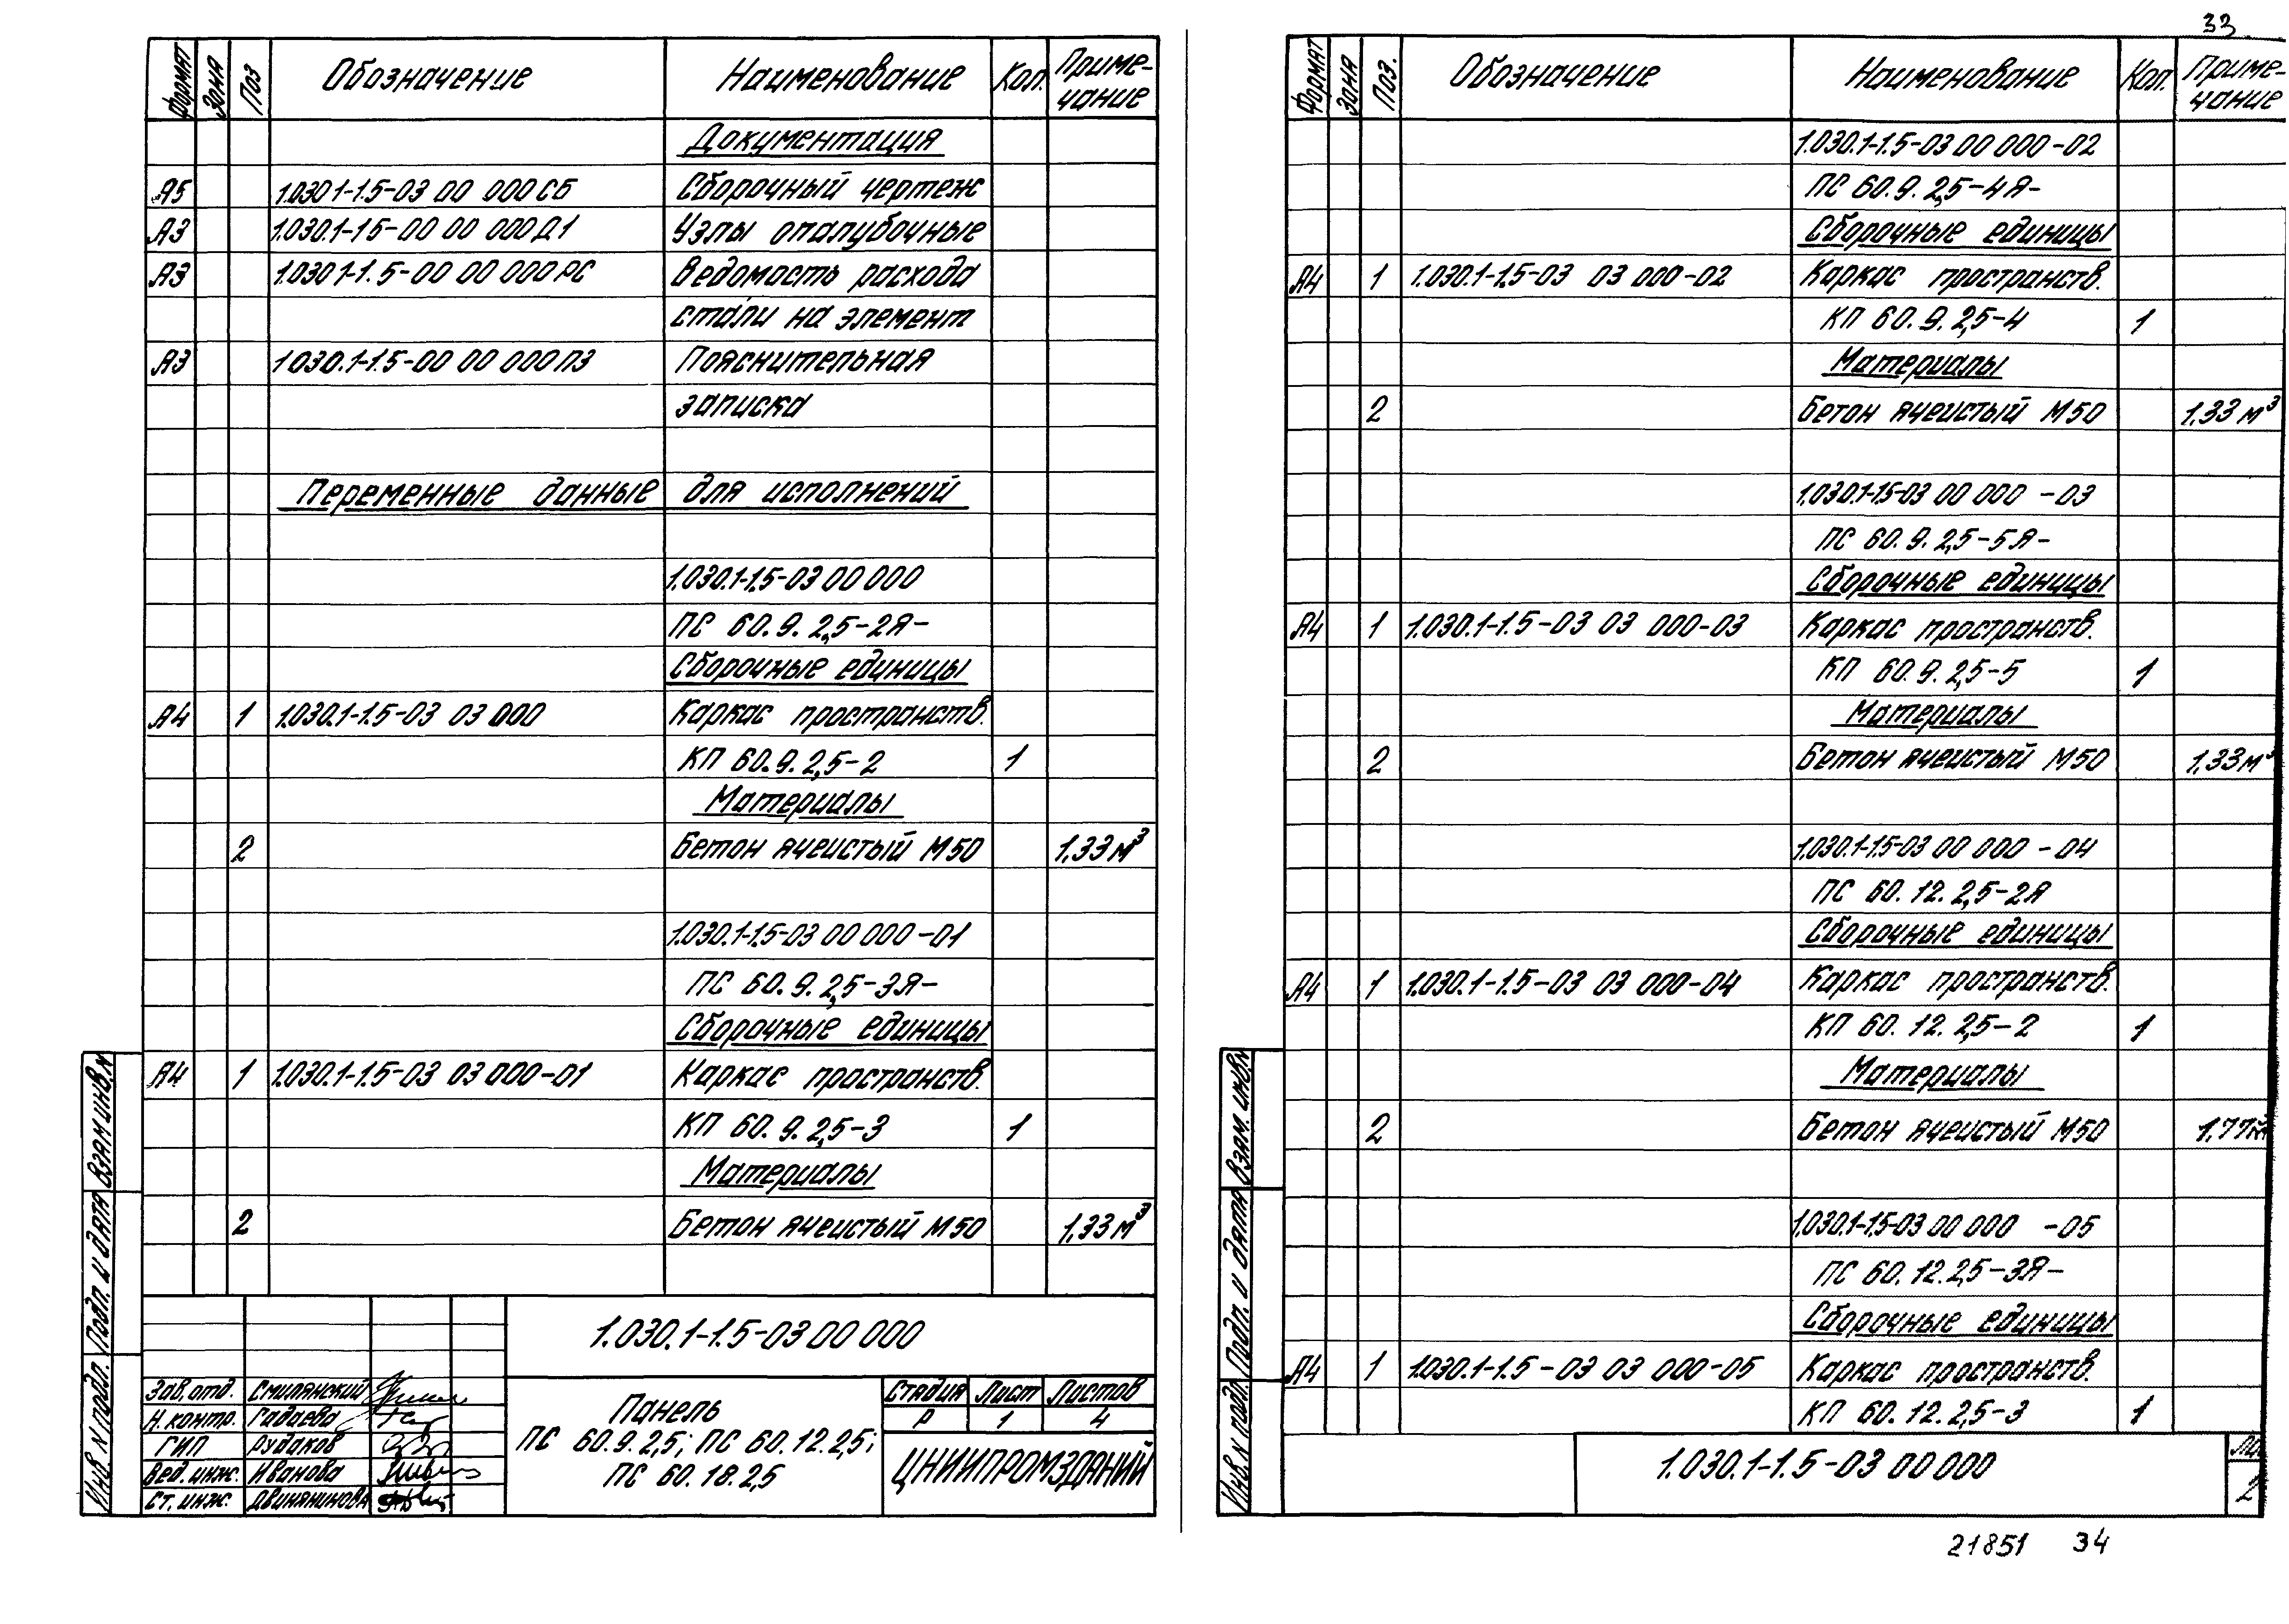 33
Формат Зона Поз Обозначение Наименование Кол. Приме-
чание
Документация
А5 1.030.1-1.5-03 00 000 СБ Сборочный чертеж
А3 1.030.1-1.5-00 00 000 Д1 Узлы опалубочные
А3 1.030.1-1.5-00 00 000 РС Ведомость расхода
стали на элемент
А3 1.030.1-1.5-00 00 000 ПЗ Пояснительная
записка
Переменные данные для исполнений
1.030.1-1.5-03 00 000
ПС 60.9.2,5-2Я-
Сборочные единицы
А4 1 1.030.1-1.5-03 03 000 Каркас пространств.
КП 60.9.2,5-2 1
Материалы
2 Бетон ячеистый М50 1,33 м³
1.030.1-1.5-03 00 000-01
ПС 60.9.2,5-3Я-
Сборочные единицы
А4 1 1.030.1-1.5-03 03 000-01 Каркас пространств.
КП 60.9.2,5-3 1
Материалы
2 Бетон ячеистый М50 1,33 м³
1.030.1-1.5-03 00 000
Зав.отд. Смилянский
Н.контр. Гадаева
ГИП Рудаков
Вед.инж. Иванова
Ст.инж. Двинянинова
Панель
ПС 60.9.2,5; ПС 60.12.2,5;
ПС 60.18.2,5
Стадия Лист Листов
Р 1 4
ЦНИИПРОМЗДАНИЙ
Инв.N подл. Подп. и дата Взам инв.N
Формат Зона Поз. Обозначение Наименование Кол. Приме-
чание
1.030.1-1.5-03 00 000-02
ПС 60.9.2,5-4Я-
Сборочные единицы
А4 1 1.030.1-1.5-03 03 000-02 Каркас пространств.
КП 60.9.2,5-4 1
Материалы
2 Бетон ячеистый М50 1,33 м³
1.030.1-1.5-03 00 000-03
ПС 60.9.2,5-5Я-
Сборочные единицы
А4 1 1.030.1-1.5-03 03 000-03 Каркас пространств.
КП 60.9.2,5-5 1
Материалы
2 Бетон ячеистый М50 1,33 м³
1.030.1-1.5-03 00 000-04
ПС 60.12.2,5-2Я
Сборочные единицы
А4 1 1.030.1-1.5-03 03 000-04 Каркас пространств.
КП 60.12.2,5-2 1
Материалы
2 Бетон ячеистый М50 1,77 м
1.030.1-1.5-03 00 000-05
ПС 60.12.2,5-3Я-
Сборочные единицы
А4 1 1.030.1-1.5-03 03 000-05 Каркас пространств.
КП 60.12.2,5-3 1
1.030.1-1.5-03 00 000
2
Инв.N подл. Подп. и дата Взам. инв.N
21851 34